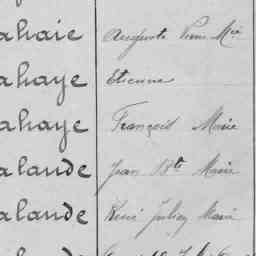 ahaie Auguste Pierre Mie
ahaye Etienne
ahaye François Marie
alande Jean Bte Marie
alande René Julien Marie